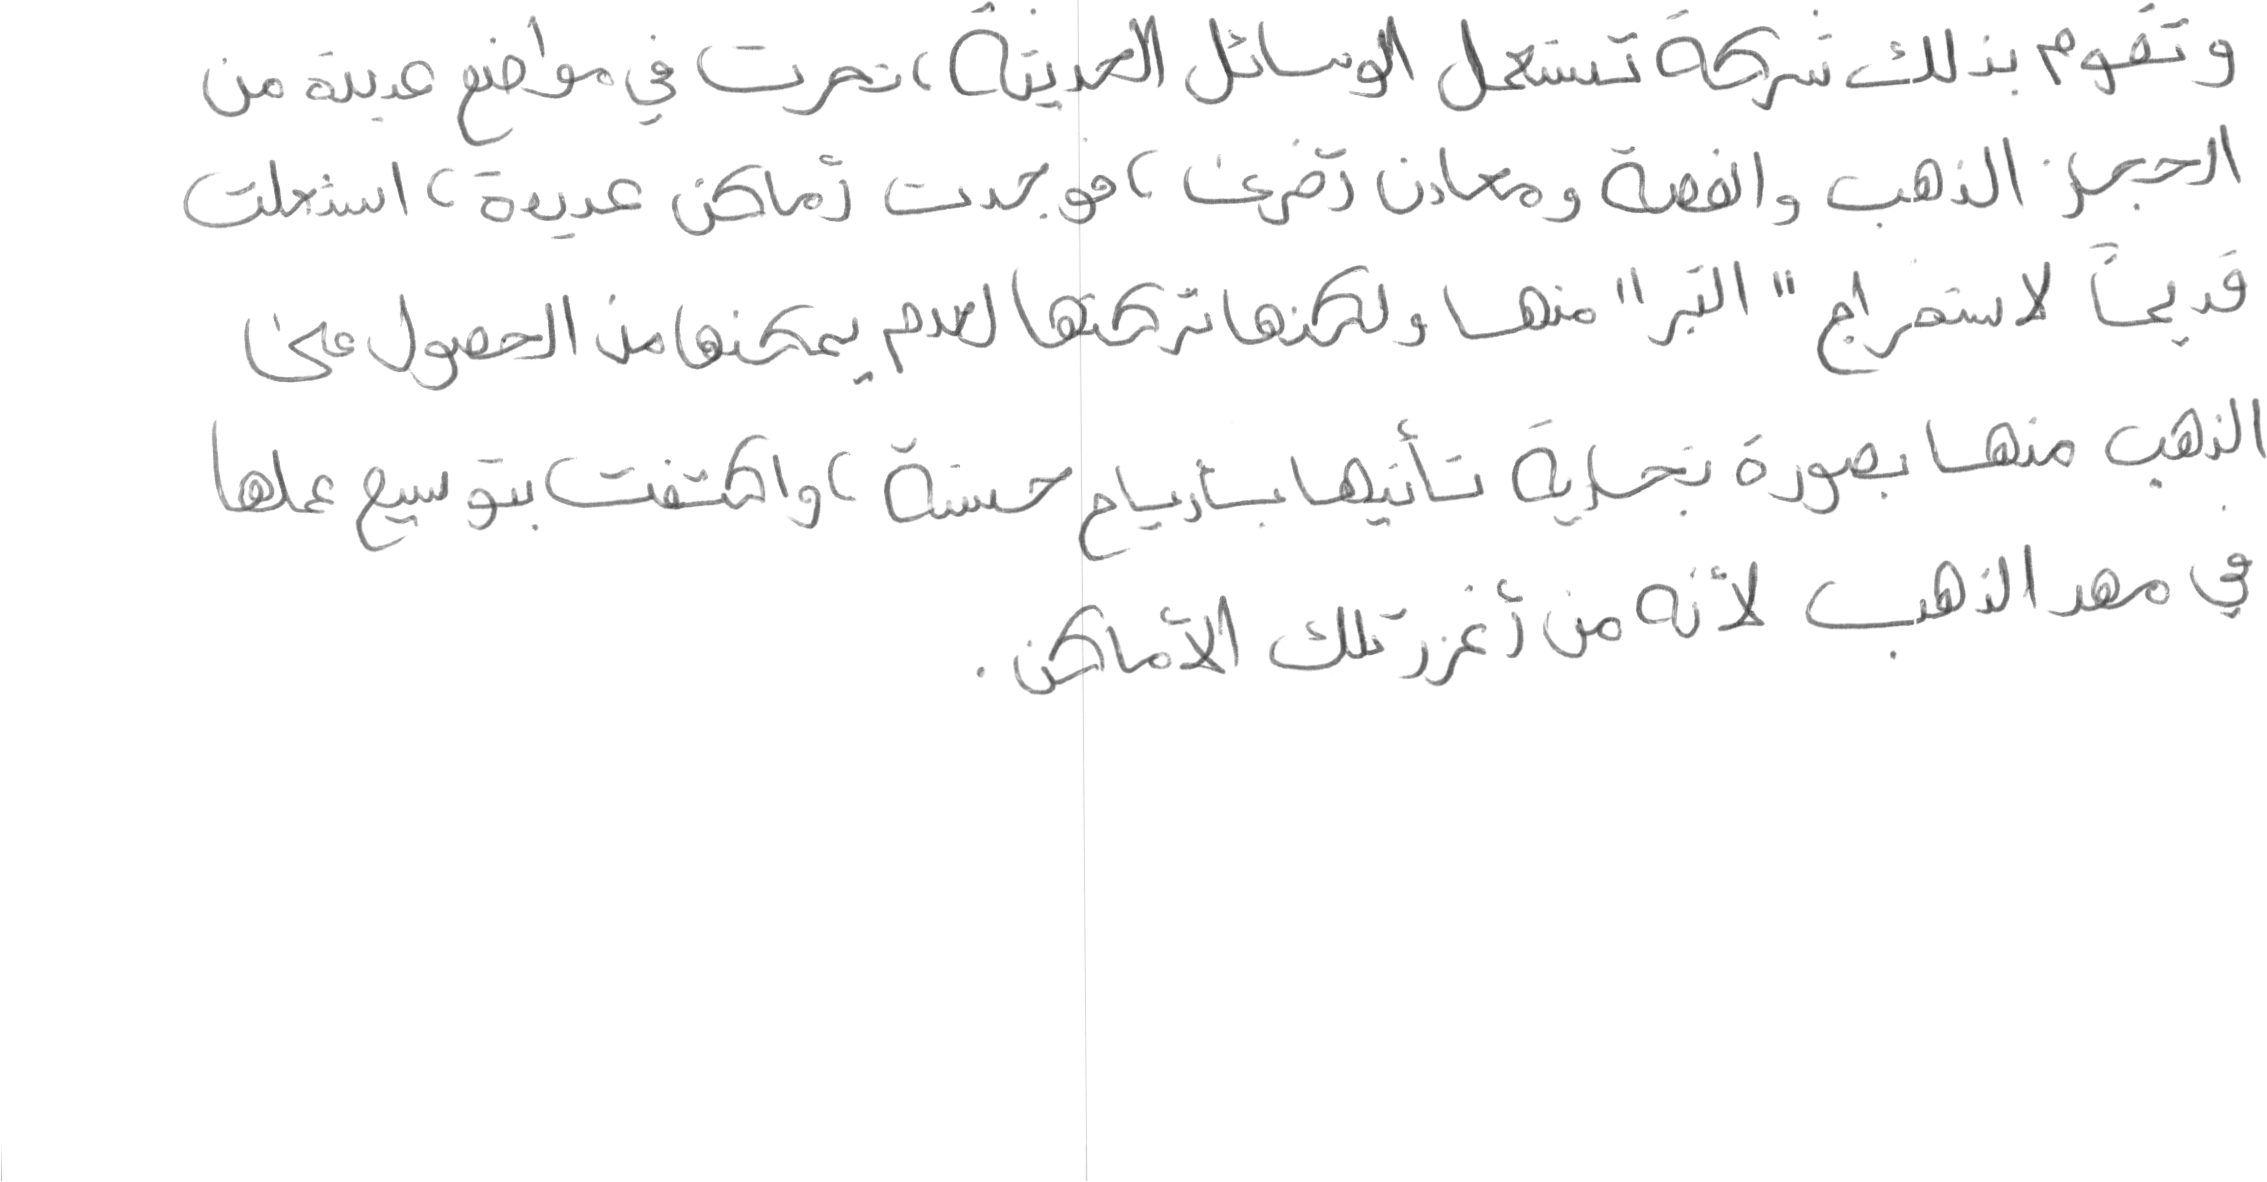 وتقوم بذلك شركة تستعمل الوسائل الحديثة، تحرت في مواضع عديدة من
الحجاز الذهب والفضة ومعادن أخرى، فوجدت أماكن عديدة، استغلت
قديماً لاستخراج "التبر" منها ولكنها تركتها لعدم يمكنها من الحصول على
الذهب منها بصورة تجارية تأتيها بأرباح حسنة، واكتفت بتوسيع عملها
في مهد الذهب لأنه من أغزر تلك الأماكن.